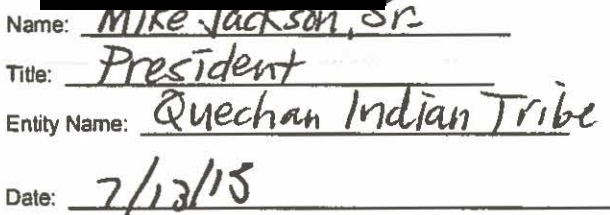 Name: Mike Jackson, Sr.
Title: President
Entity Name: Quechan Indian Tribe
Date: 7/13/15